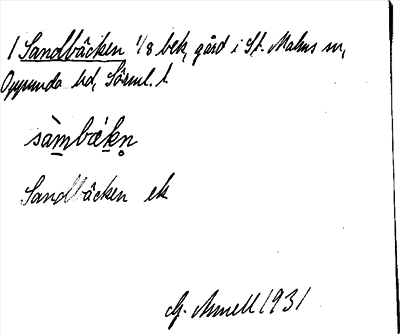 1 Sandbäcken 1/8 bek, gård i St. Malms sn,
Oppunda hd, Sörml. l.
sàmbäkn
Sandbäcken ek
G. Arnell 1931